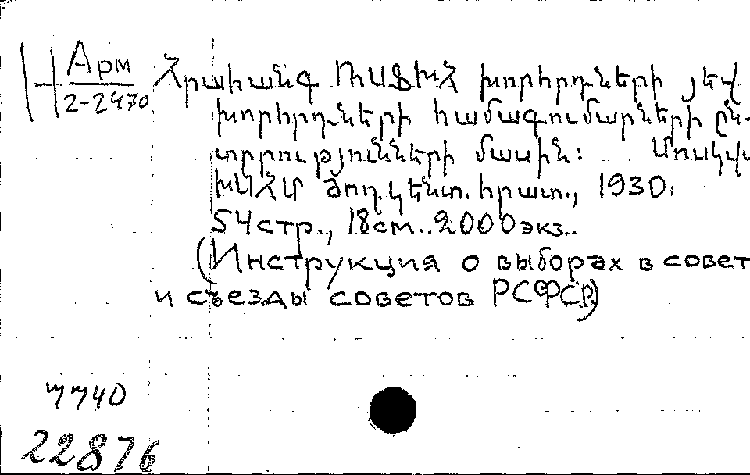 Арм
2-2470
Հրահանգ ՌՍՖԽՀ խորհրդների յեվ
խորհրդների համագումարների ըն-
տրությունների մասին: Մոսկվա
ԽՍՀՄ ժող. կենտ. հրատ., 1930.
54стр., 18см.. 2000экз..
(Инструкция о выборах в совет
и съезды советов РСФСР)
7740
22876